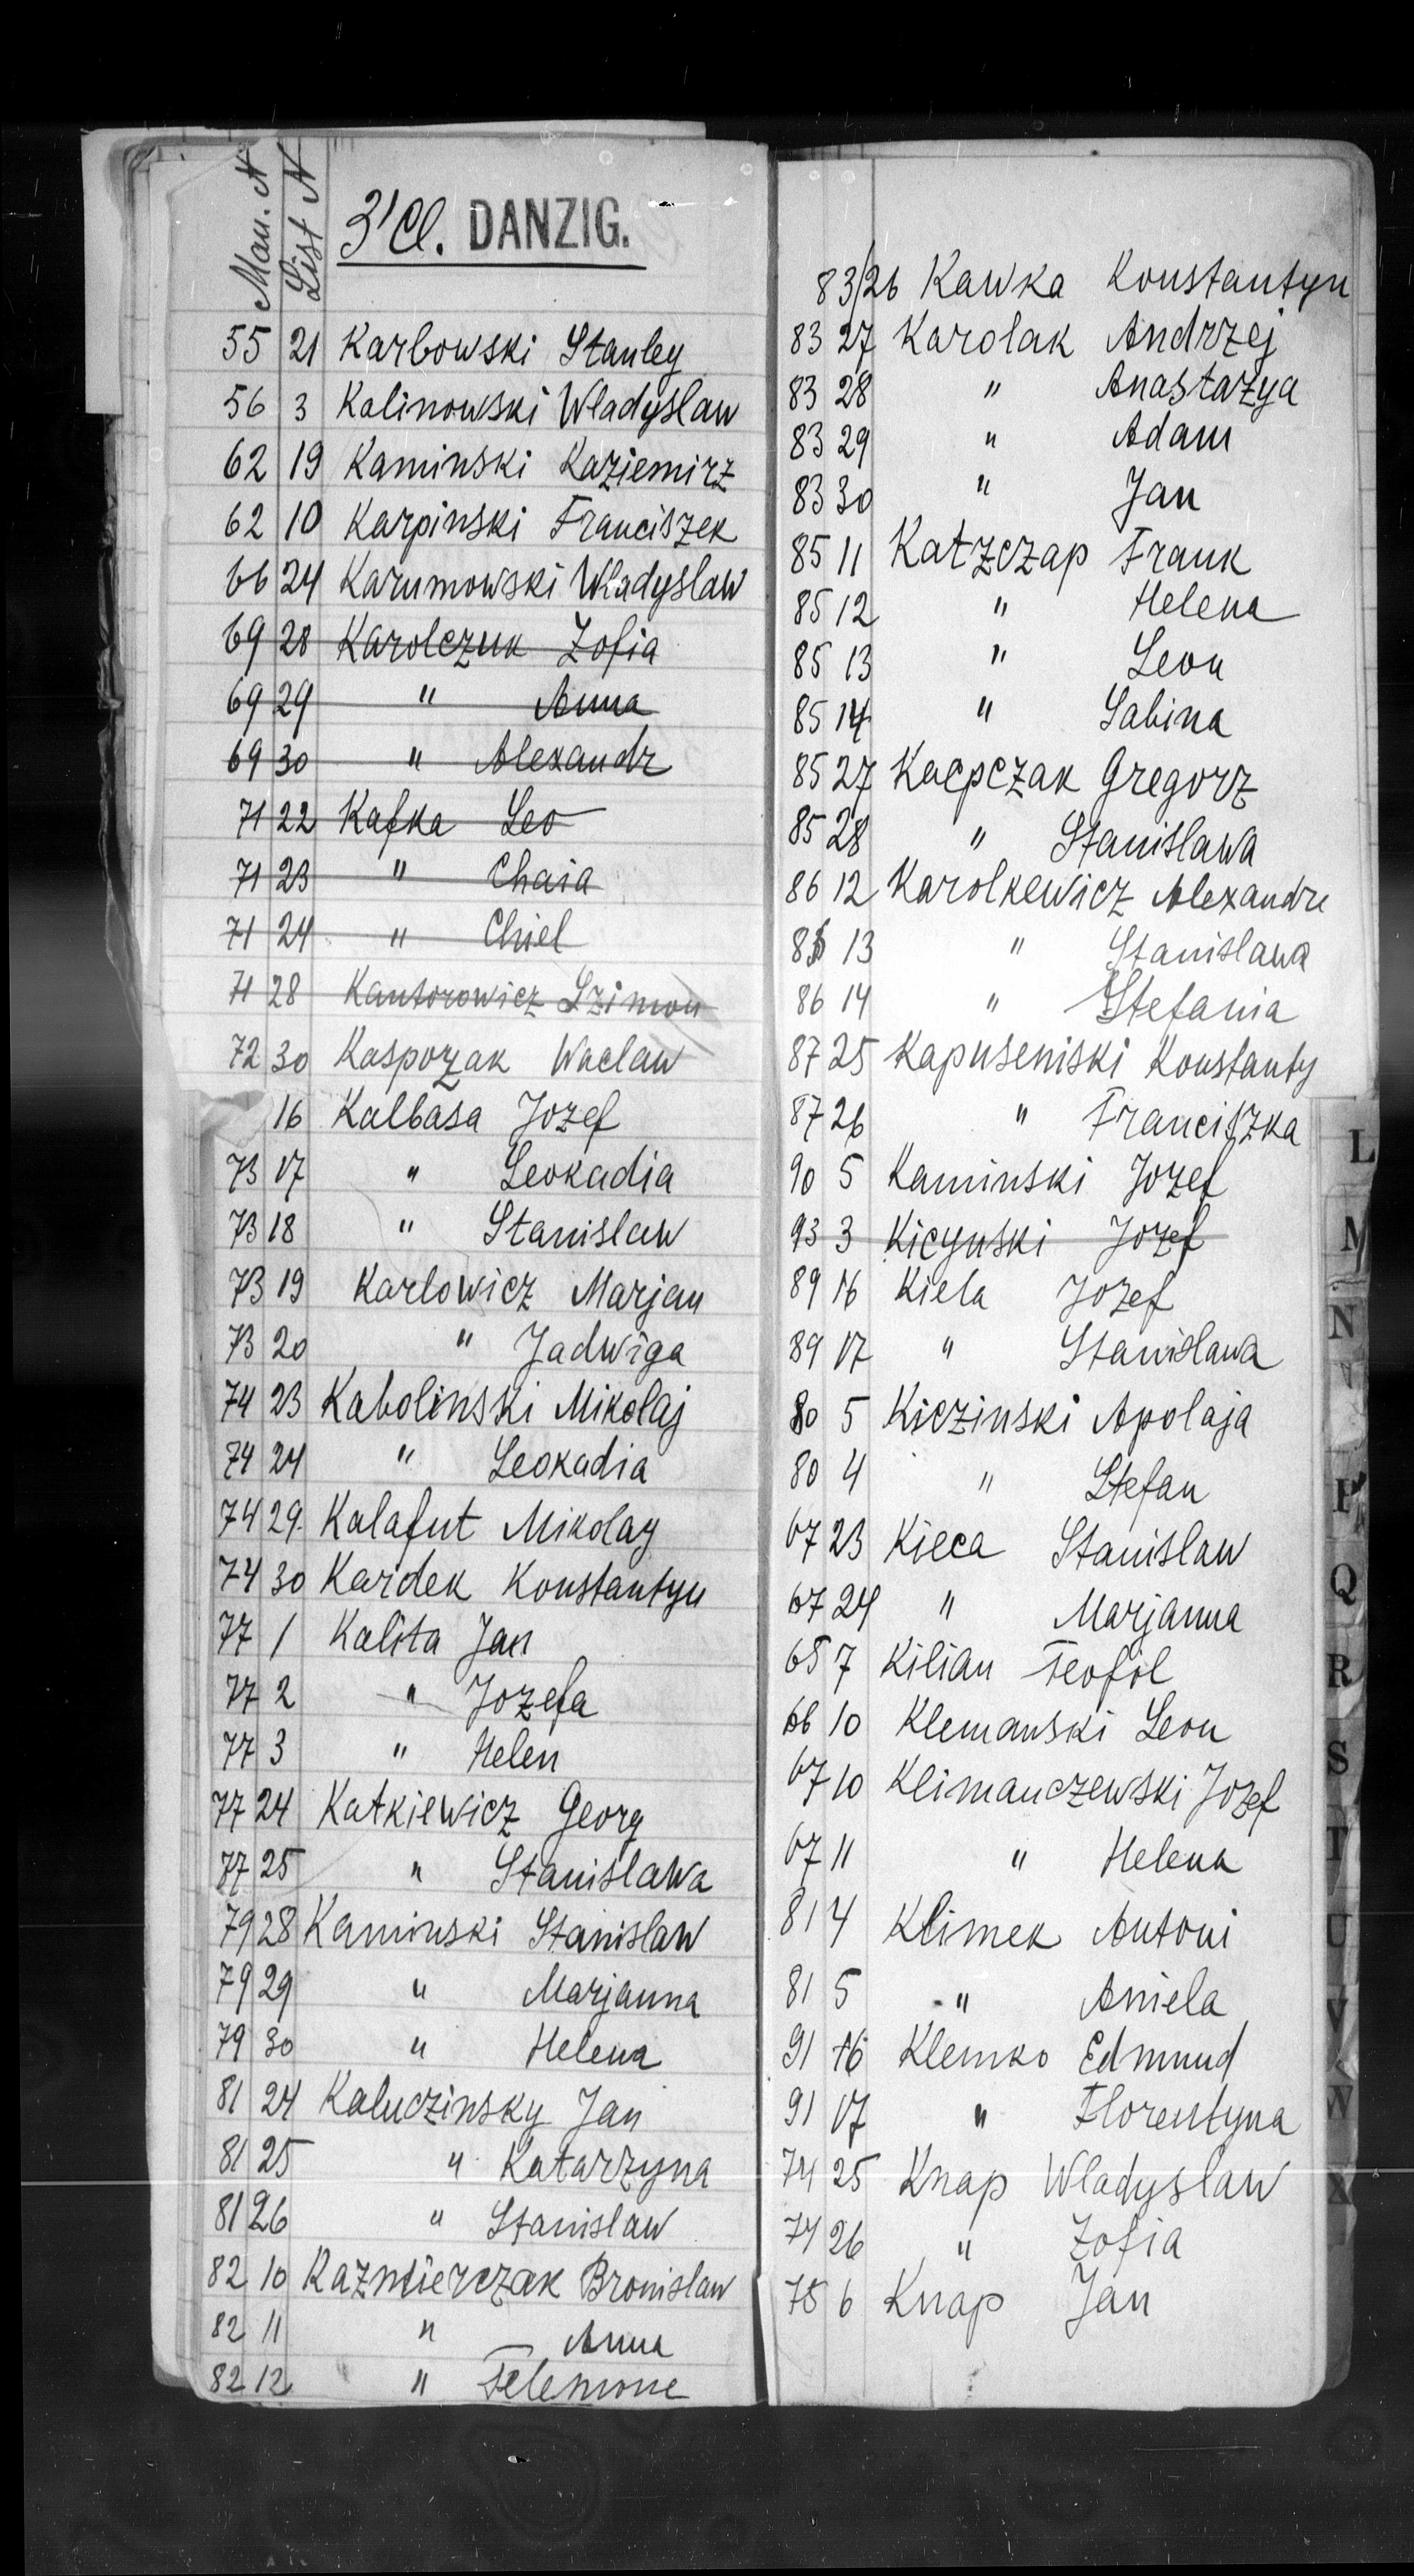 Man. N
List N
3'Cl. DANZIG.
55 21 Karbowski Stanley
56 3 Kalinowski Wladyslaw
62 19 Kaminski Kaziemirz
62 10 Karpinski Franciszek
66 24 Karumowski Wladyslaw
69 28 Karolczuk Zofia
69 29 " Anna
69 30 " Alexandr
71 22 Kafka Leo
71 23 " Chaia
71 24 " Chiel
71 28 Kantorowicz Szimon
72 30 Kaspozak Waclaw
16 Kalbasa Jozef
73 17 " Leokadia
73 18 " Stanislaw
73 19 Karlowicz Marjan
73 20 " Jadwiga
74 23 Kabolinski Mikolaj
74 24 " Leokadia
74 29. Kalafut Mikolay
74 30 Kardek Konstantyn
77 1 Kalita Jan
77 2 " Jozefa
77 3 " Helen
77 24 Katkiewicz Georg
77 25 " Stanislawa
79 28 Kaminski Stanislaw
79 29 " Marjanna
79 30 " Helena
81 24 Kaluczinsky Jan
81 25 " Katarzyna
81 26 " Stanislaw
82 10 Kazmierczak Bronislaw
82 11 " Anna
82 12 " Felemone
83/26 Kawka Konstantyn
83 27 Karolak Andrzej
83 28 " Anastazya
83 29 " Adam
83 30 " Jan
85 11 Katzczap Frank
85 12 " Helena
85 13 " Leon
85 14 " Sabina
85 27 Kacpczak Gregorz
85 28 " Stanislawa
86 12 Karolkewicz Alexandre
86 13 " Stanislawa
86 14 " Stefania
87 25 Kapuseniski Konstanty
87 26 " Franciszka
90 5 Kaminski Jozef
93 3 Kicynski Jozef
89 16 Kiela Jozef
89 17 " Stanislawa
80 5 Kiczinski Apolaja
80 4 " Stefan
67 23 Kieca Stanislaw
67 24 " Marjanna
68 7 Kilian Teofil
66 10 Klemanski Leon
67 10 Klimanczewski Jozef
67 11 " Helena
81 4 Klimek Antoni
81 5 " Aniela
91 16 Klemko Edmund
91 17 " Florentyna
74 25 Knap Wladyslaw
74 26 " Zofia
75 6 Knap Jan
L
M
N
P
Q
R
S
T
U
V
W
X